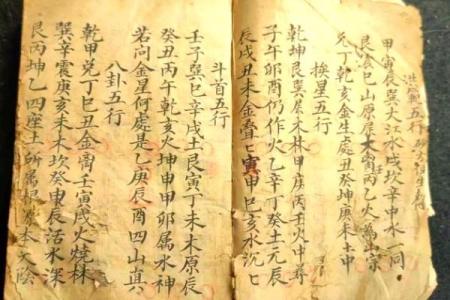 洪範五行
甲寅辰巽大江水戌坎辛申水一同
艮震巳山原屬木離壬丙乙火為宗
兌丁乾亥金生處丑癸坤庚未土中
挨星五行
乾坤艮巽屬木林甲庚丙壬火中尋
子午卯酉們作火乙辛丁癸土元辰
辰戌丑未金聲七寅申巳亥水沉七
斗首五行
壬子巽巳辛戌土艮寅丁未木原辰
癸丑丙午乾亥火坤申甲卯属水神
若問金星何處是乙庚辰酉四山真
八卦五行
乾甲兌丁巳丑金离壬寅戌火燒林
巽辛震庚亥未木坎癸申辰活水深
艮丙坤乙四座土所属根原本大陰